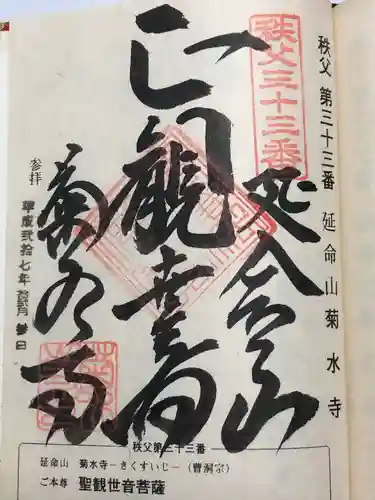 秩父 第三十三番 延命山菊水寺
秩父三十三番
延命山
正観世音
菊水寺
参拝
平成弐拾七年
秩父第三十三番
延命山 菊水寺-きくすいじ-(曹洞宗)
ご本尊 聖観世音菩薩